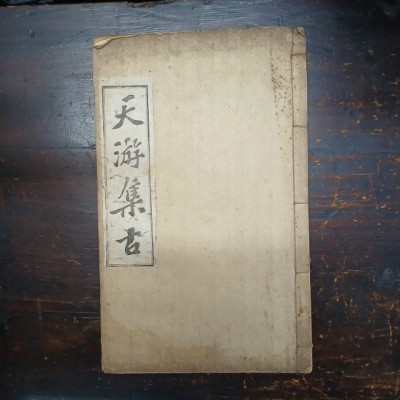 天游集古